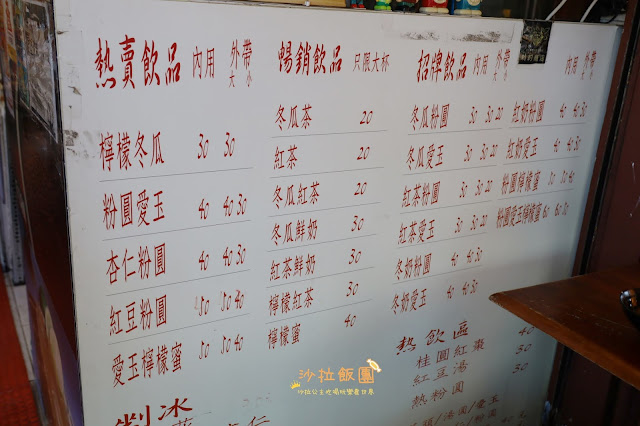 熱賣飲品 內用 外帶 大 小
檸檬冬瓜 30 30
粉圓愛玉 40 40 30
杏仁粉圓 40 40 30
紅豆粉圓 50 50 40
愛玉檸檬蜜 50 50 40
剉冰
暢銷飲品 只限大杯
冬瓜茶 20
紅茶 20
冬瓜紅茶 20
冬瓜鮮奶 30
紅茶鮮奶 30
檸檬紅茶 30
檸檬蜜 40
招牌飲品 內用 外帶 大 小
冬瓜粉圓 30 30 20
冬瓜愛玉 30 30 20
紅茶粉圓 30 30 20
紅茶愛玉 30 30 20
冬奶粉圓 40 40 30
冬奶愛玉 40 40 30
內用 外帶 大 小
紅奶粉圓 40 40 30
紅奶愛玉 40 40 30
粉圓檸檬蜜 50 50 40
粉圓愛玉檸檬蜜 60 60 50
熱飲區 40
桂圓紅棗 30
紅豆湯 30
熱粉圓
沙拉飯團
沙拉公主吃喝玩樂看世界